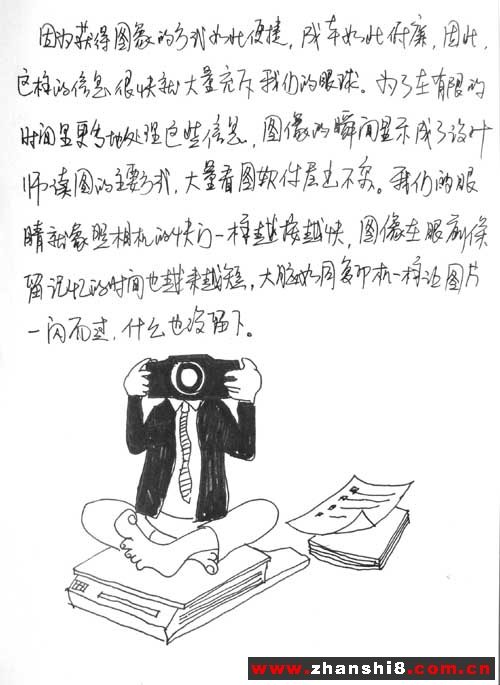 因为获得图象的方式如此便捷，成本如此低廉，因此，
这样的信息很快就大量充斥我们的眼球。为了在有限的
时间里更多地处理这些信息，图像的瞬间显示成了设计
师读图的主要方式，大量看图软件层出不穷。我们的眼
睛就象照相机的快门一样越按越快，图像在眼前停
留记忆的时间也越来越短，大脑如同复印机一样让图片
一闪而过，什么也没留下。
www.zhanshi8.com.cn